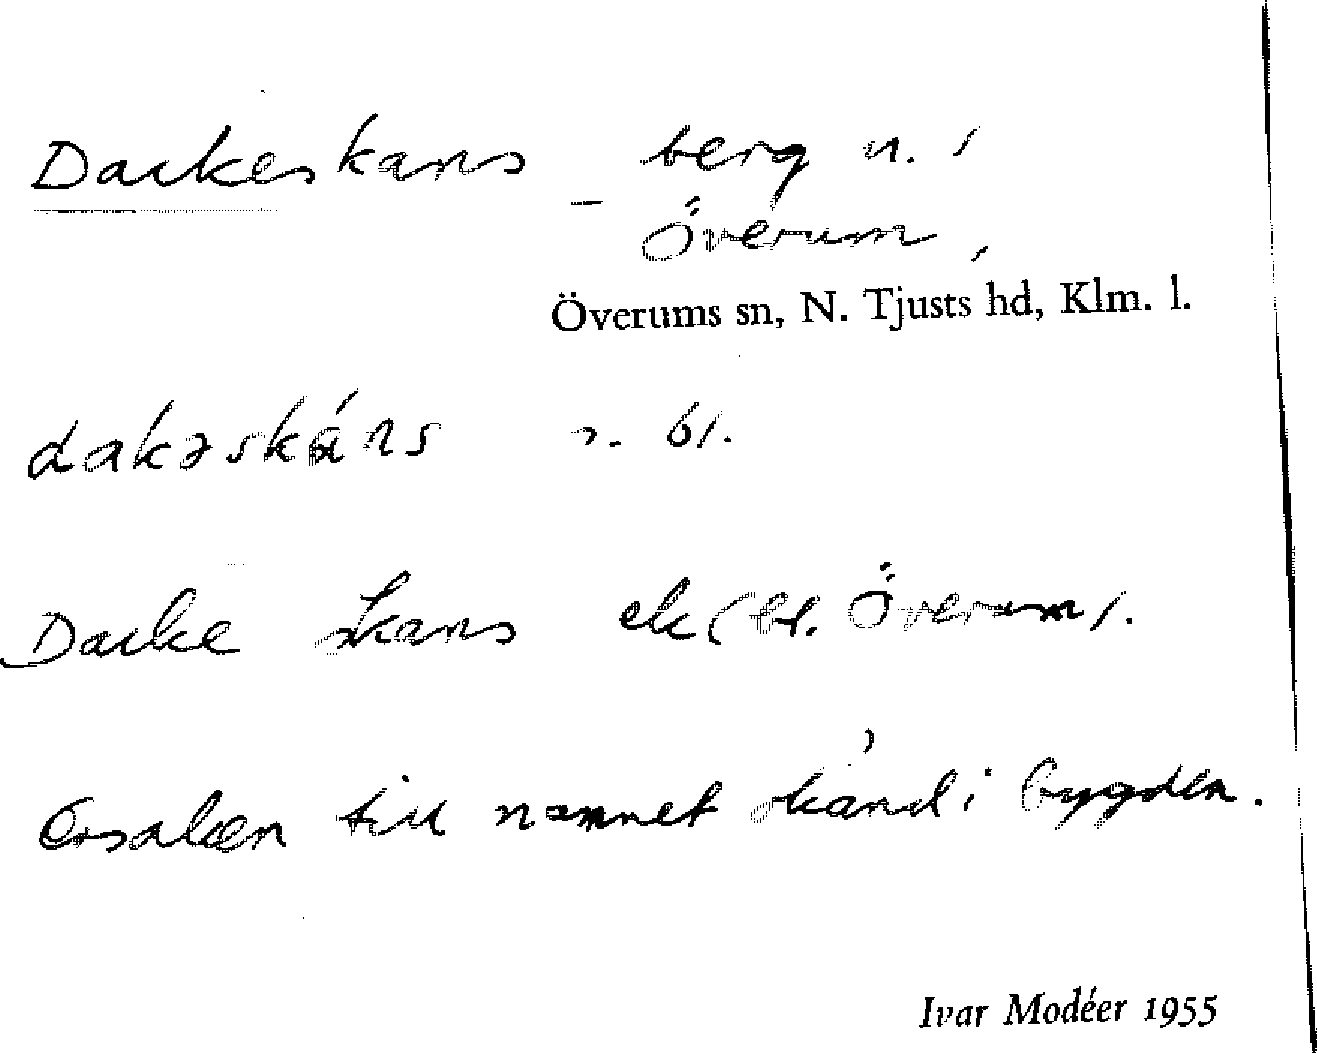 Dackeskans berg n. i
Överum,
Överums sn, N. Tjusts hd, Klm. l.
dakəskáns n. bl.
Dacke skans ek (bl. Överum).
Orsaken till namnet okänd i bygden.
Ivar Modéer 1955